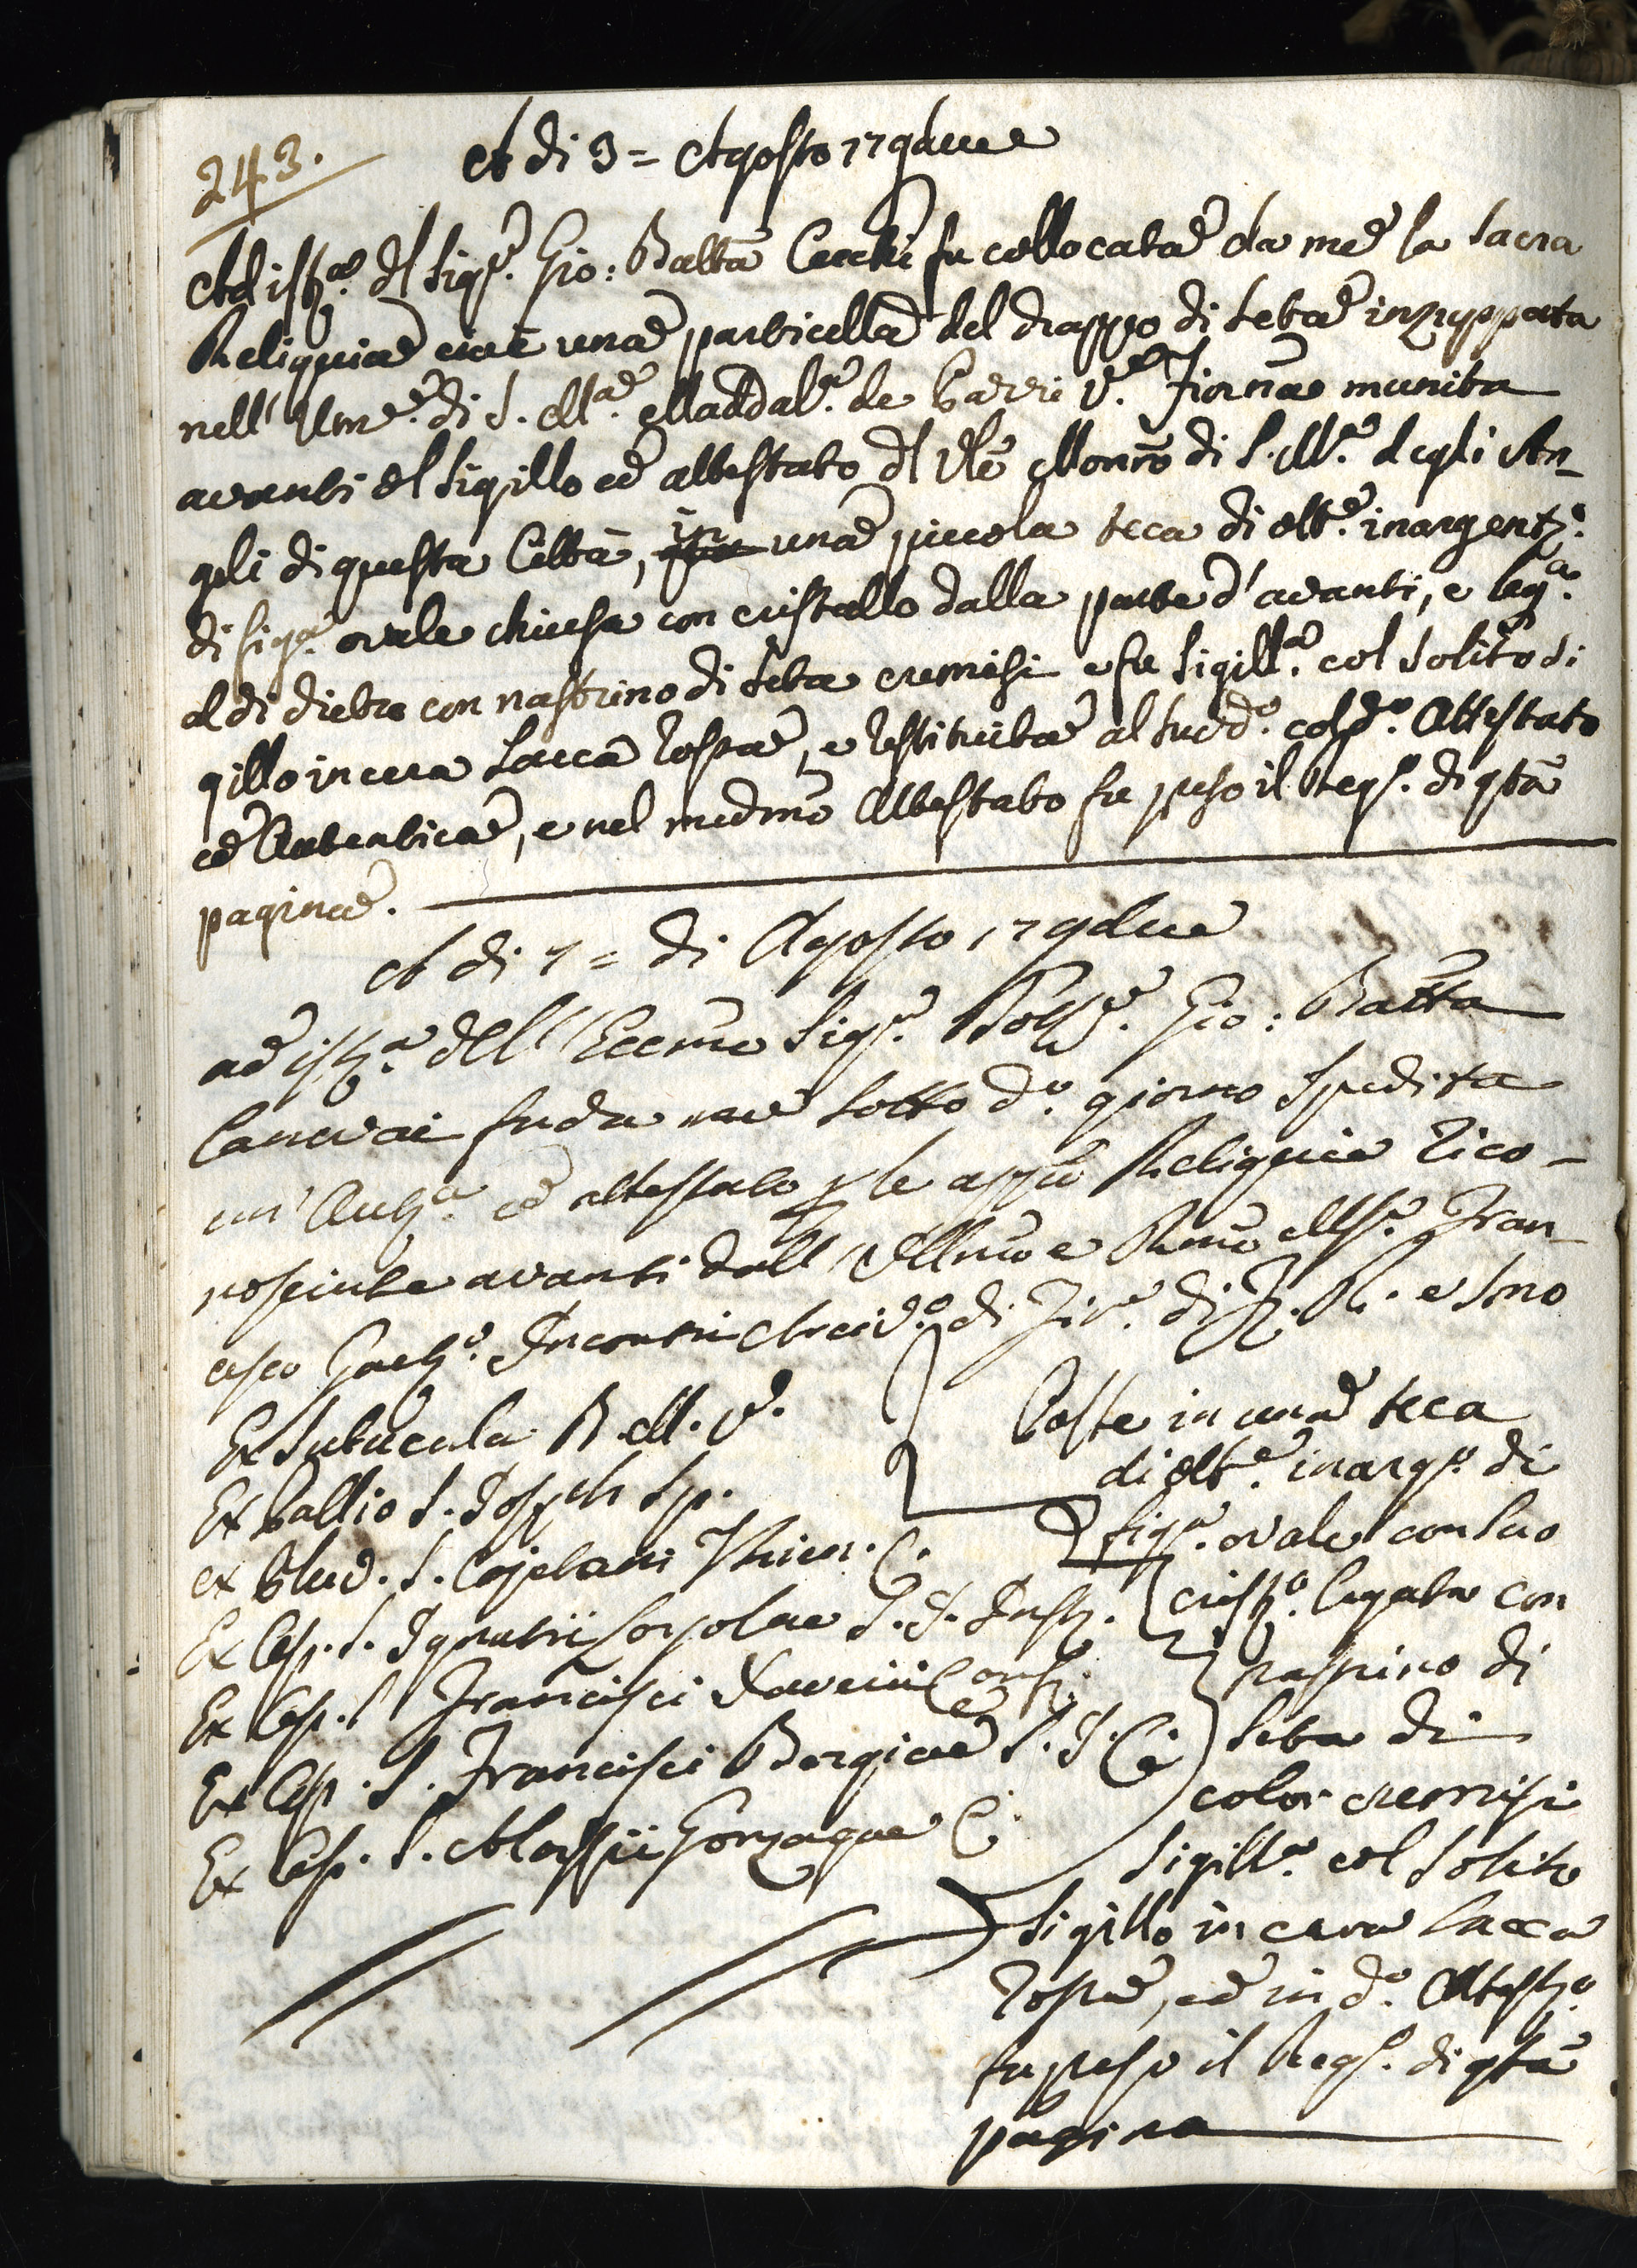 243.
A di 3 = Agosto 179due
Ad istza. dl Sigr. Gio: Batta Cecchi fu collocata da me la Sacra
Reliquia cioè una particella del drappo di seta inzuppata
nell' Ume. di S. Ma. Maddala. de Pazzi Ve. Fiorna munita
avanti dl Sigillo ed attestato dl Vle Monro di S. Ma. degli An-
geli di questa Città, in una piccola teca di otte. inargenta.
di figa. ovale chiusa con cristallo dalla parte d'avanti, e lega.
al di dietro con nastrino di seta cremisi e fu Sigilla. col Solito Si
gillo in cera Lacca rossa, e restituita al sudo. col do. Attestato
ed Autentica, e nel medmo Attestato fu preso il Regs. di qta
pagina.
A di 7 = di Agosto 179due
ad istza. dell' Eccmo Sigr. Dotte. Gio: Batta
Canovai fu da me sotto do. giorno spedita
un' Autca. ed attestato p le appie Reliquie rico-
nosciute avanti dall' Illmo e Rmo Msr. Fran-
cesco Gaeto. Incontri Arcivo. di Fire. di F. R. e Sono
Ex Subucula B. M. V.
Ex Pallio S. Joseph Sp.
ex Ind. S. Cajetani Thien. C.
Ex Cap. S. Ignatii Lojolae S. J. Inst.
Ex Cap. S Francisci Xaverii Conf.
Ex Cap. S. Francisci Borgiae S. J. C.
Ex Cap. S. Aloysii Gonzagae C.
Poste in una teca
di otte. inargo. di
figa. ovale con suo
cristo. legata con
nastrino di
Seta di
color cremisi
Sigilla. col Solito
Sigillo in cera lacca
rossa, ed in do. Attesto.
fu preso il Regs. di qta
pagina